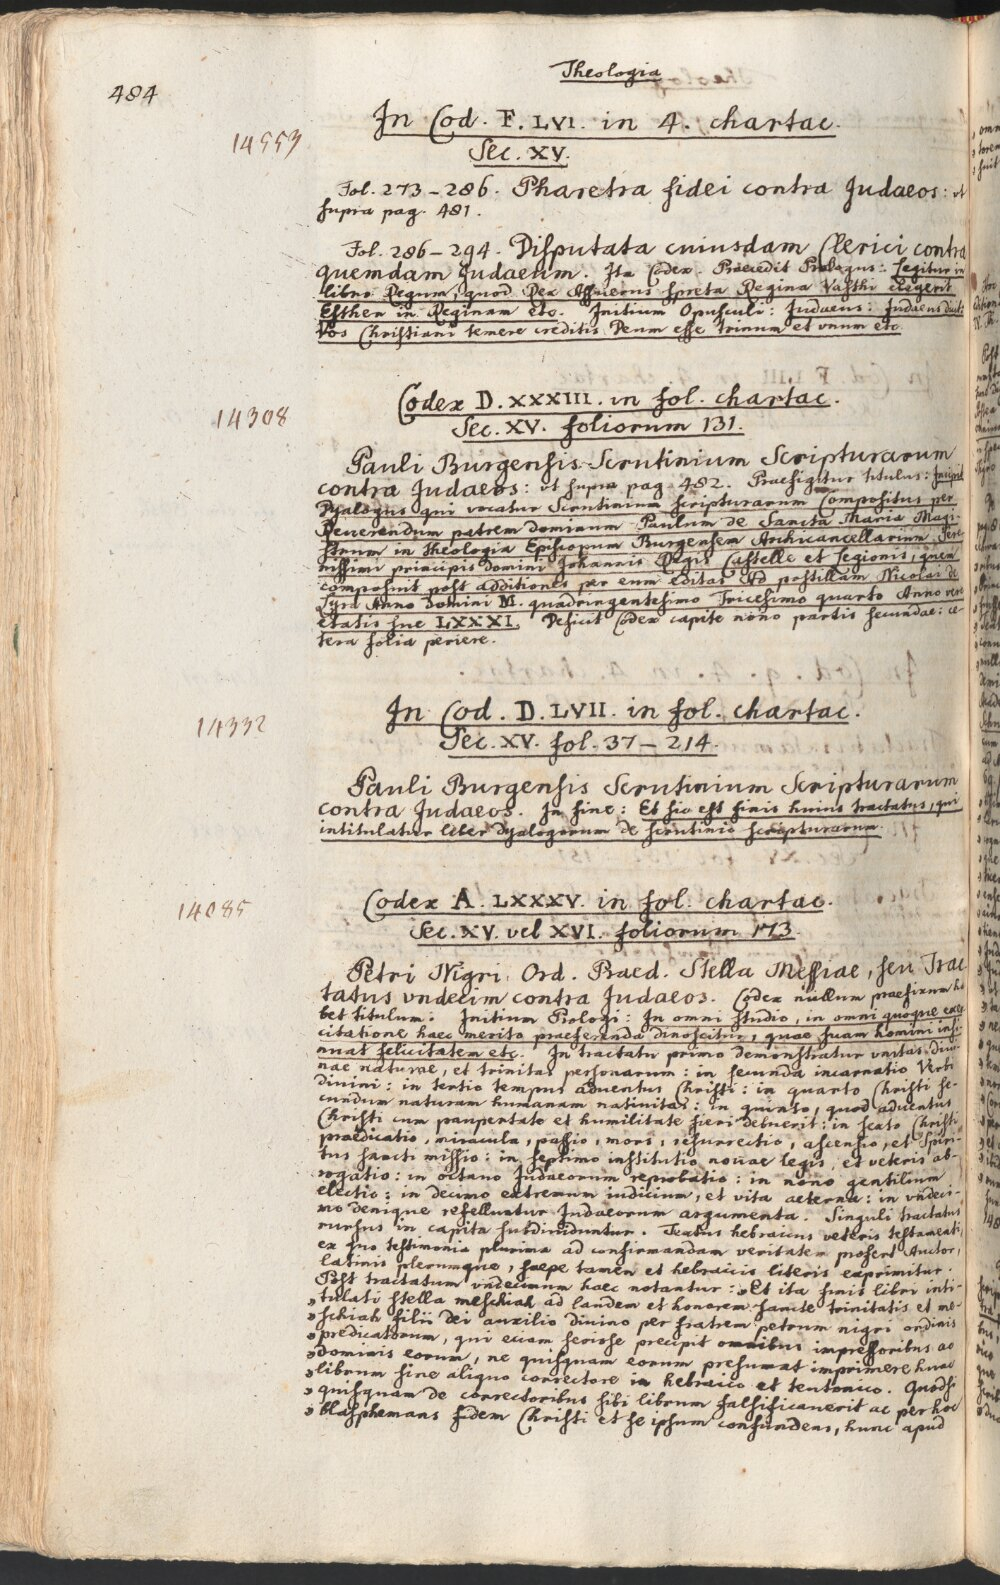 Theologia
484
In Cod. F. LVI. in 4. chartac.
14553
Sec. XV.
Fol. 273-286. Pharetra fidei contra Judaeos: ut
supra pag. 481.
Fol. 286-294. Disputata cuiusdam Clerici contra
quemdam Judaeum. Ita Codex. Praecedit Prologus: Legitur in
libro Regum, quod Rex Assuerus spreta Regina Vasthi elegerit
Esther in Reginam etc. Initium Opusculi: Judaeus: Judaeus dicit:
Vos Christiani temere creditis Deum esse trinum et unum etc.
Codex D. XXXIII. in fol. chartac.
14308
Sec. XV. foliorum 131.
Pauli Burgensis Scrutinium Scripturarum
contra Judaeos: ut supra pag. 482. Praefigitur titulus: Incipit
Dyalogus qui vocatur Scrutinium scripturarum Compositus per
Reverendum patrem dominum Paulum de Sancta Maria Magi-
strum in theologia Episcopum Burgensem Archicancellarium Sere
nissimi principis domini Johannis Regis Castelle et Legionis, quem
composuit post additiones per eum editas ad postillam Nicolai de
Lyra Anno Domini M. quadringentesimo Tricesimo quarto Anno vero
etatis sue LXXXI. Deficit Codex capite nono partis secundae: ce-
tera folia periere.
In Cod. D. LVII. in fol. chartac.
14332
Sec. XV. fol. 37-214.
Pauli Burgensis Scrutinium Scripturarum
contra Judaeos. In fine: Et sic est finis huius tractatus, qui
intitulatur liber dyalogorum de scrutinio scripturarum.
Codex A. LXXXV. in fol. chartac.
14085
Sec. XV. vel XVI. foliorum 173.
Petri Nigri Ord. Praed. Stella Messiae, seu Trac
tatus vndecim contra Judaeos. Codex nullum praefixum ha
bet titulum. Initium Prologi: In omni studio, in omni quoque exer
citatione haec merito praeferenda dinoscitur, quae suam homini insi-
nuat felicitatem etc. In tractatu primo demonstratur vnitas divi-
nae naturae, et trinitas personarum: in secundo incarnatio Verbi
divini: in tertio tempus adventus Christi: in quarto Christi se-
cundum naturam humanam nativitas: in quinto, quod adventus
Christi cum paupertate et humilitate fieri debuerit: in sexto Christi
praedicatio, miracula, passio, mors, resurrectio, ascensio, et Spiri-
tus sancti missio: in septimo institutio novae legis, et veteris ab-
rogatio: in octavo Judaeorum reprobatio: in nono gentilium
electio: in decimo extremum iudicium, et vita aeterna: in vndeci-
mo denique refelluntur Judaeorum argumenta. Singuli tractatus
rursus in capita subdividuntur. Textus hebraicus veteris testamenti,
ex quo testimonia plurima ad confirmandam veritatem profert Auctor,
latinis plerumque, saepe tamen et hebraicis literis exprimitur.
Post tractatum vndecimum haec notantur: „Et ita finis libri inti-
„tulati stella meschiah ad laudem et honorem sancte trinitatis et me-
„schiah filii dei auxilio divino per fratrem petrum nigri ordinis
„predicatorum, qui eciam seriose precipit omnibus impressoribus ac
„dominis eorum, ne quisquam eorum presumat imprimere hunc
„librum sine aliquo correctore in hebraico et teutonico. Quodsi
„quisquam de correctoribus sibi librum falsificaverit ac per hoc
„blasphemans fidem Christi et se ipsum confundens, hunc apud